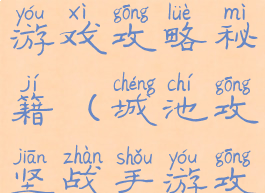 yóu xì gōng lüè mì
游戏攻略秘
jí chéng chí gōng
籍（城池攻
jiān zhàn shǒu yóu gōng
坚战手游攻